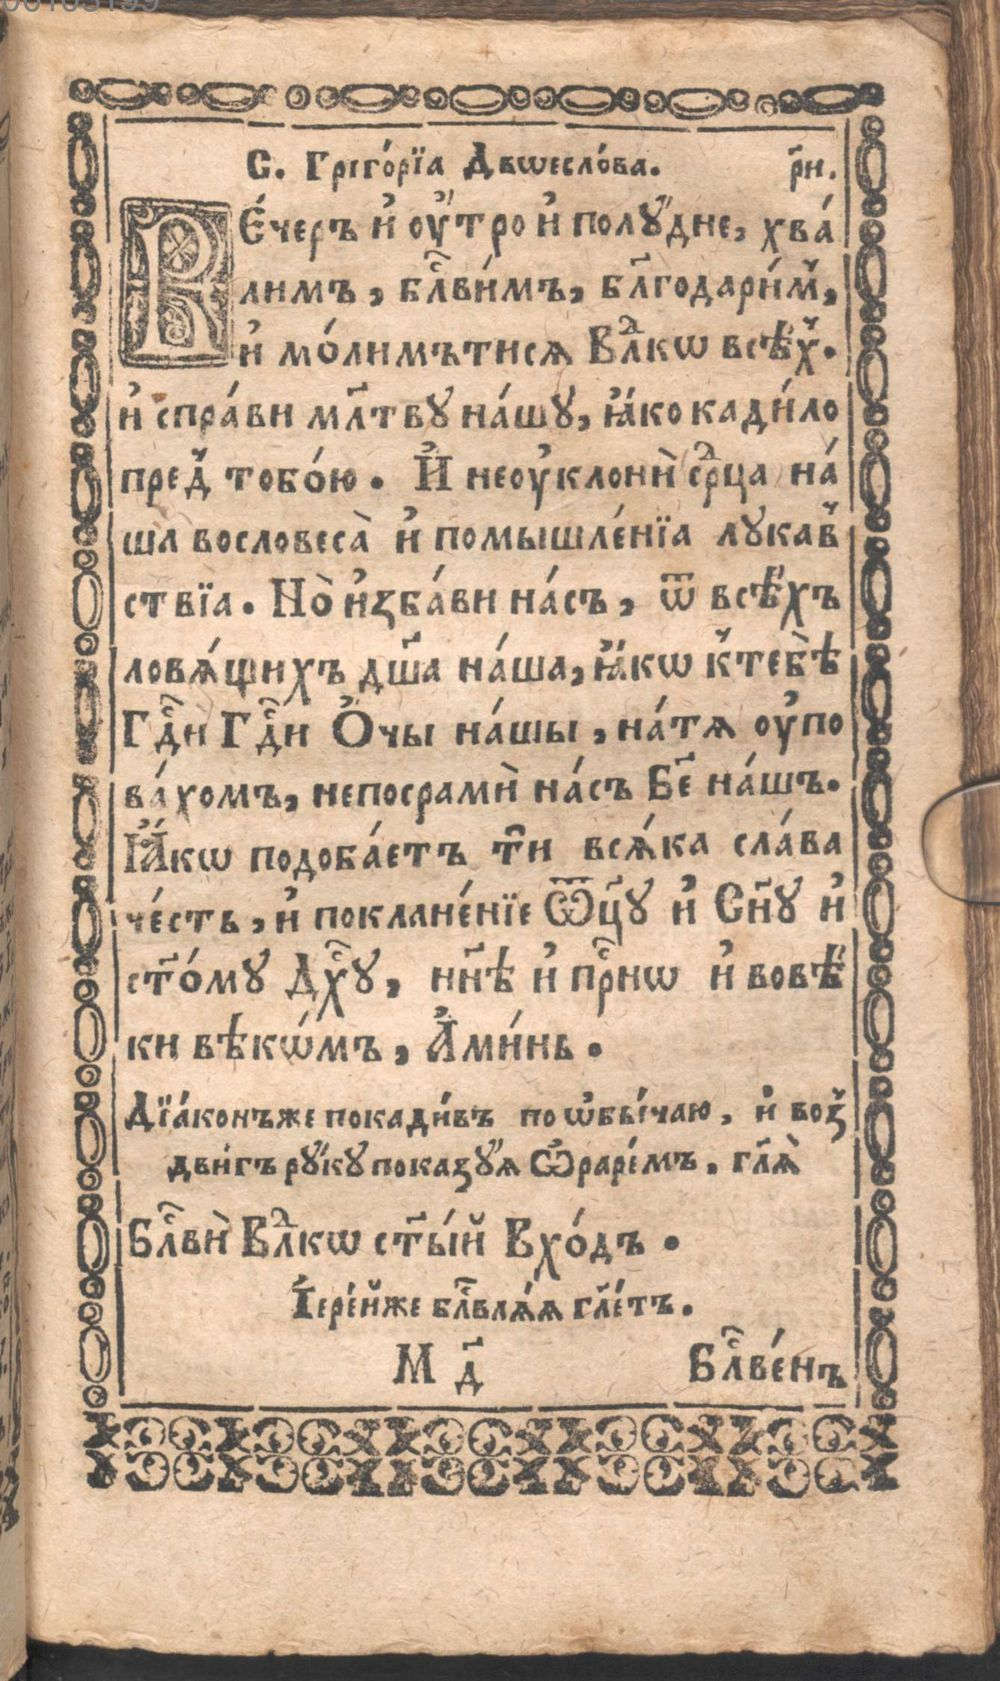 С. Григо́рїа Двоесло́ва. р҃н.
ВЕ́черъ и҆ оу҆́тро и҆ полꙋ́дне, хва́
лимъ, бл҃ви́мъ, бл҃годари́м̾,
и҆ мо́лимътися Влⷣкѡ всѣ́х̾.
и҆ спра́ви мл҃твꙋ на́шꙋ, ꙗ҆́ко кади́ло
пред̾ тобо́ю. И҆ неоу҆клонѝ срⷣца на́
ша вословеса̀ и҆ помышле́нїа лꙋка́в̾
ствїа. Но̀ и҆зба́ви на́съ, ѿ всѣ́хъ
ловѧ́щихъ дш҃а на́ша, ꙗ҆́кѡ к̾тебѣ̀
Гдⷭ҇и Гдⷭ҇и О҆́чы на́шы, на́тѧ оу҆по
ва́хомъ, непосрамѝ на́съ Бж҃е на́шъ.
Ꙗ҆́кѡ подоба́етъ тѝ всѧ́ка сла́ва
че́сть, и҆ поклане́нїе Ѿц҃ꙋ и҆ Сн҃ꙋ и҆
ст҃о́мꙋ Дх҃ꙋ, нн҃ѣ и҆ прⷭ҇нѡ и҆ вовѣ́
ки вѣкѡ́мъ, А҆ми́нь.
Дїа́конъже покади́въ по ѡ҆бы́чаю, и҆ воз̾
дви́гъ рꙋ́кꙋ показꙋ́ѧ Ѡ҆раре́мъ, гл҃ѧ̀
Бл҃вѝ Влⷣкѡ ст҃ы́й Вхо́дъ.
І҆ере́йже бл҃влѧ́ѧ гл҃е́тъ.
М д҃
Бл҃ве́нъ
00105199